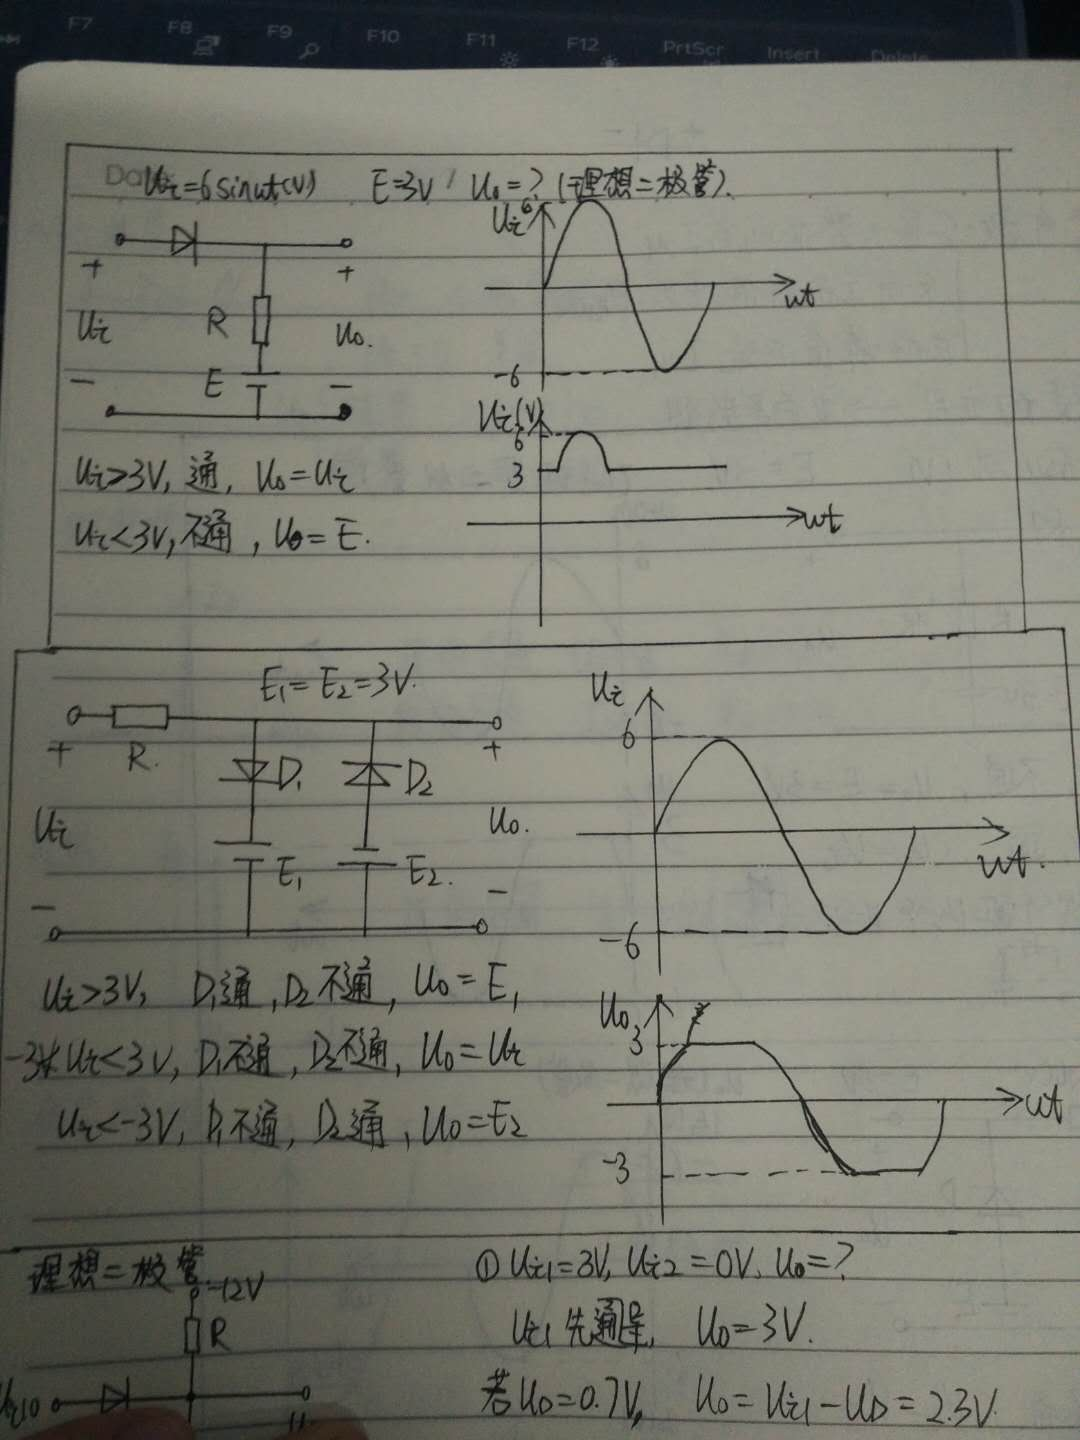 F7 F8 F9 F10 F11 F12 PrtScr Insert Delete
Ui=6sinωt(V) E=3V Uo=? (理想二极管).
Ui 6
+ +
ωt
Ui R Uo.
- E -
-6
Ui(V)
6
3
ωt
Ui>3V, 通, Uo=Ui
Ui<3V, 不通, Uo=E.
E₁=E₂=3V.
Ui
6
+ R. +
D₁ D₂
Ui Uo.
ωt.
E₁ E₂.
- -
-6
Ui>3V, D₁通, D₂不通, Uo=E₁
Uo
3
-3< Ui<3V, D₁不通, D₂不通, Uo=Ui
ωt
Ui<-3V, D₁不通, D₂通, Uo=E₂
-3
理想二极管
-12V
R
① Ui1=3V, Ui2=0V, Uo=?
Ui1先通导, Uo=3V.
若UD=0.7V, Uo=Ui1-UD=2.3V